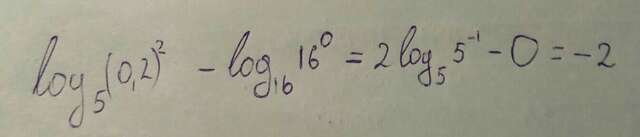 log₅(0,2)² - log₁₆16⁰ = 2log₅5⁻¹ - 0 = -2